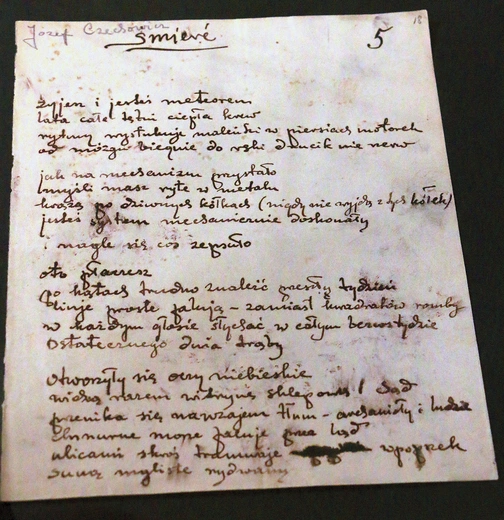 Józef Czechowicz
śmierć
5
18
żyjesz i jesteś meteorem
lata całe tętni ciepła krew
rytmy wystukuje maleńki w piersiach motorek
od mózgu biegnie do ręki drucik nie nerw
jak na mechanizm przystało
myśli masz ryte w metalu
krążą po dziwnych kółkach (nigdy nie wyjdą z tych kółek)
jesteś system mechanicznie doskonały
i nagle się coś zepsuło
oto płaczesz
po kątach trudno znaleźć przeszły tydzień
linje proste falują – zamiast kwadratów romby
w każdym głosie słychać w całym bezwstydzie
ostatecznego dnia trąby
otworzyły się oczy niebieskie
widzą razem witrynę sklepową i Sąd
przenika się nawzajem tłum – archanioły i ludzie
chmurne morze faluje przez ląd
ulicami skroś tramwaje wpoprzek
suną mgliste rydwany